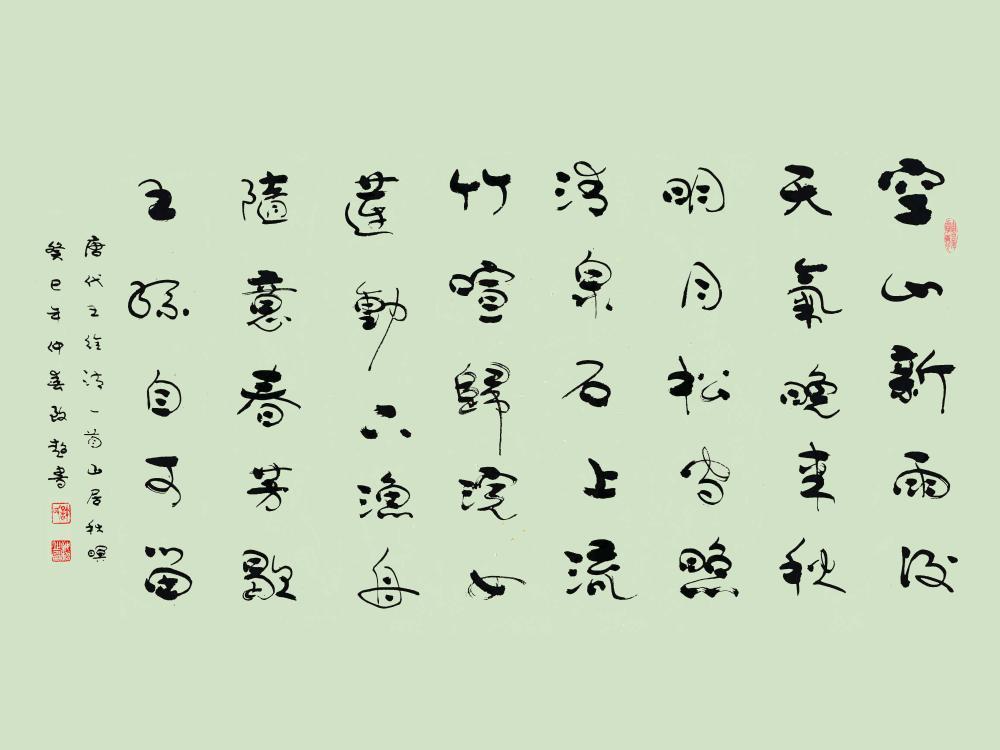 空山新雨後
天氣晚來秋
明月松間照
清泉石上流
竹喧歸浣女
蓮動下漁舟
隨意春芳歇
王孫自可留
唐代王維詩一首山居秋暝
癸巳年仲春政書